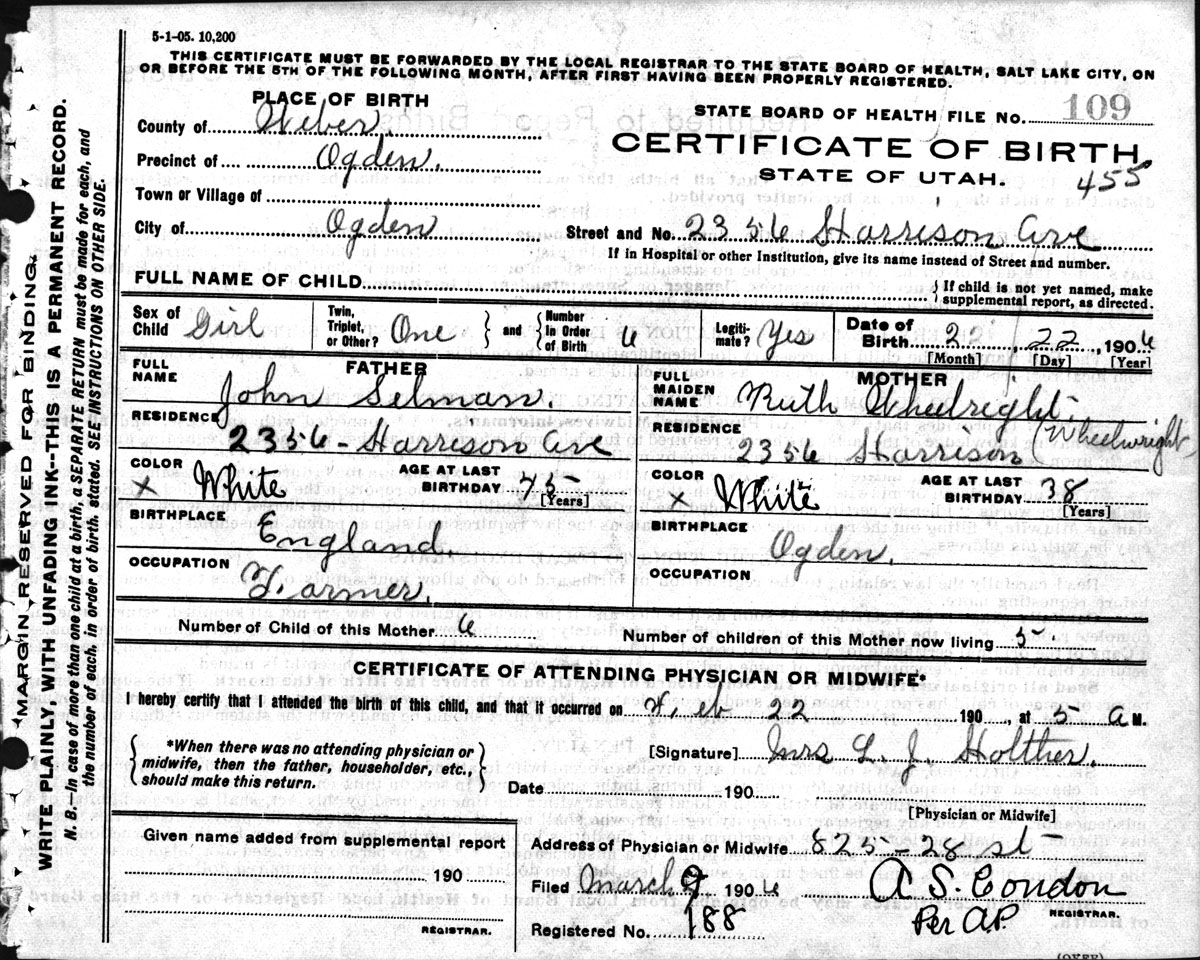 5-1-05. 10,200
THIS CERTIFICATE MUST BE FORWARDED BY THE LOCAL REGISTRAR TO THE STATE BOARD OF HEALTH, SALT LAKE CITY, ON
OR BEFORE THE 5TH OF THE FOLLOWING MONTH, AFTER FIRST HAVING BEEN PROPERLY REGISTERED.
MARGIN RESERVED FOR BINDING.
WRITE PLAINLY, WITH UNFADING INK--THIS IS A PERMANENT RECORD.
N. B. In case of more than one child at a birth, a SEPARATE RETURN must be made for each, and
the number of each, in order of birth, stated. SEE INSTRUCTIONS ON OTHER SIDE.
PLACE OF BIRTH
County of Weber.
Precinct of Ogden.
Town or Village of
City of Ogden
STATE BOARD OF HEALTH FILE NO. 109
CERTIFICATE OF BIRTH
STATE OF UTAH.
455
Street and No. 2356 Harrison Ave
If in Hospital or other Institution, give its name instead of Street and number.
FULL NAME OF CHILD
If child is not yet named, make
supplemental report, as directed.
Sex of Child Girl
Twin, Triplet, or Other? One
and Number In Order of Birth 6
Legiti-mate? Yes
Date of Birth 22, 22, 1906
[Month] [Day] [Year]
FATHER
FULL NAME John Selman.
RESIDENCE 2356 - Harrison Ave
COLOR X White
AGE AT LAST BIRTHDAY 75 [Years]
BIRTHPLACE England.
OCCUPATION Farmer.
MOTHER
FULL MAIDEN NAME Ruth Wheelright.
(Wheelwright
RESIDENCE 2356 Harrison
COLOR X White
AGE AT LAST BIRTHDAY 38 [Years]
BIRTHPLACE Ogden.
OCCUPATION
Number of Child of this Mother 6
Number of children of this Mother now living 5
CERTIFICATE OF ATTENDING PHYSICIAN OR MIDWIFE*
I hereby certify that I attended the birth of this child, and that it occurred on Feb 22 190 , at 5 a M.
*When there was no attending physician or
midwife, then the father, householder, etc.,
should make this return.
[Signature] Mrs L. J. Holther.
Date 190
[Physician or Midwife]
Given name added from supplemental report
190
REGISTRAR.
Address of Physician or Midwife 825-28 st
Filed March 9 1906 A S. Condon
REGISTRAR.
Per A.P.
Registered No. 188
(OVER)